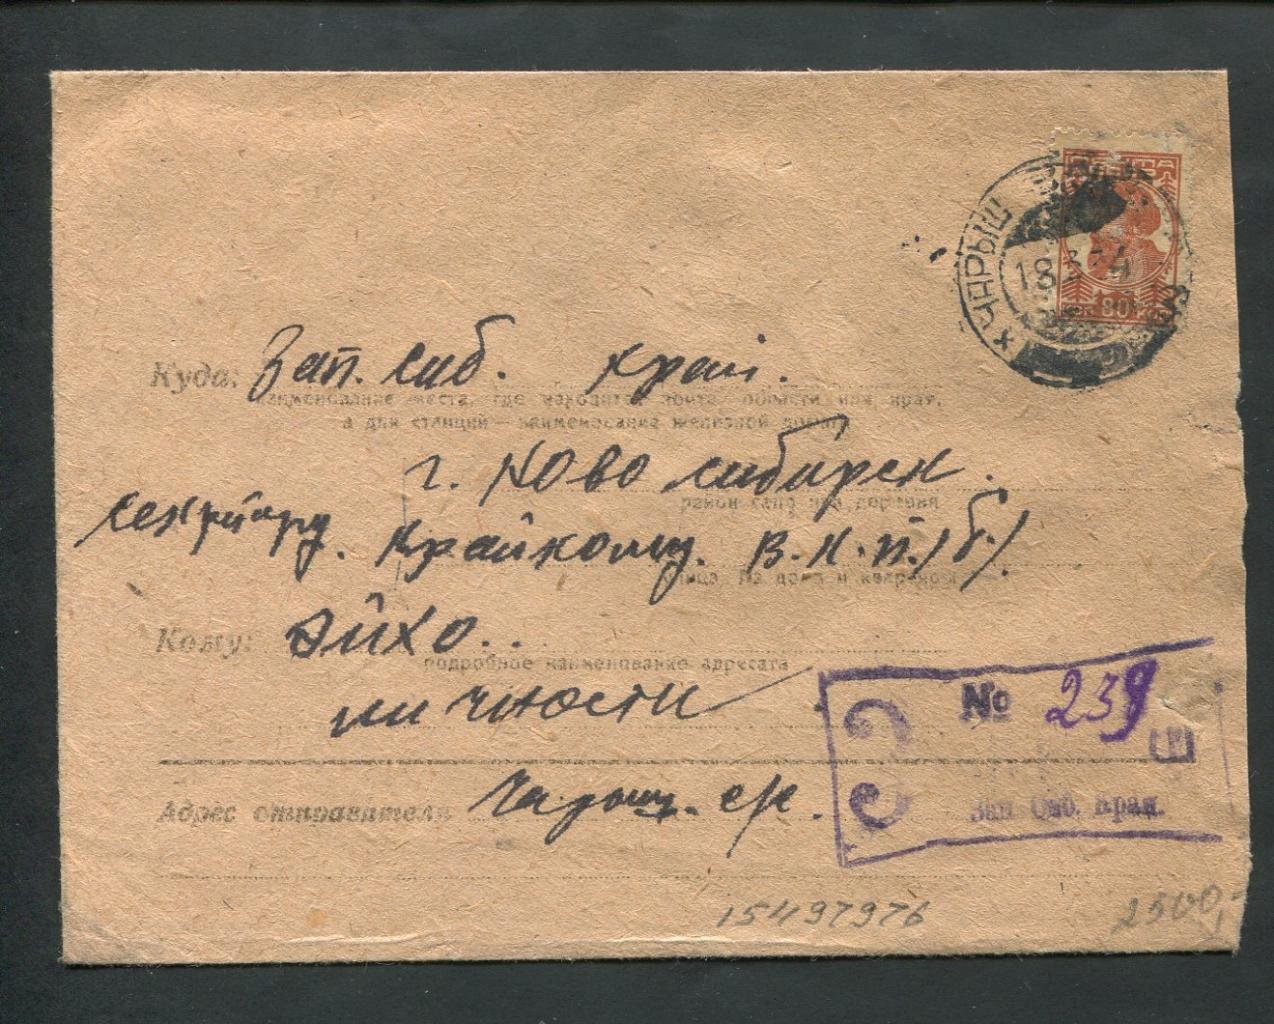 ПОЧТА
ЧАРЫШ
18 3 34
80
Куда: Зап. сиб. край.
наименование места, где находится почта, области или края,
а для станций — наименование железной дороги
г. Ново сибирск.
район, село или деревня
секритарю. Крайкому. В.К.П./б./
улица, № дома и квартиры
Кому: Эйхо..
подробное наименование адресата
личности
№ 239
Зап Сиб. Края.
Адрес отправителя Чарыш. с/с.
15497976
2500,-